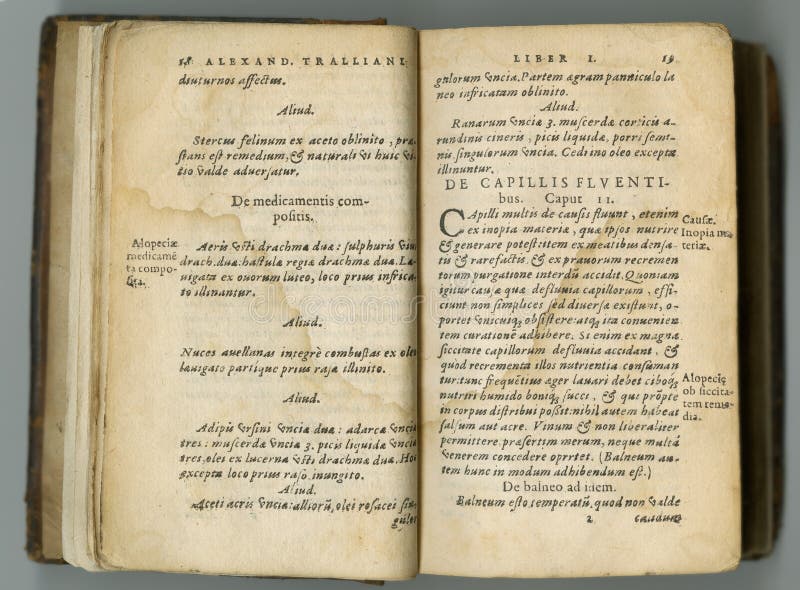 18 ALEXAND. TRALLIANI
diuturnos affectus.
Aliud.
Stercus felinum ex aceto oblinito, præ-
stans est remedium, & naturali vi huic vi-
tio valde aduersatur.
De medicamentis com-
positis.
Alopeciæ
medicamē
ta compo-
sita.
Aeris vsti drachmæ duæ: sulphuris viui
drach. duæ: hastulæ regiæ drachmæ duæ. Læ-
uigata ex ouorum luteo, loco prius infrica-
to illinantur.
Aliud.
Nuces auellanas integrè combustas ex oleo
læuigato partique prius rasæ illinito.
Aliud.
Adipis vrsini vnciæ duæ: adarcæ vnciæ
tres: muscerdæ vnciæ 3. picis liquidæ vnciæ
tres, olei ex lucerna vsti drachmæ duæ.
excepta loco prius raso inungito.
Aliud.
Aceti acris vncia: alliorū, olei rosacei sin-
gulor
LIBER I. 19
gulorum vncia. Partem ægram panniculo la
neo infricatam oblinito.
Aliud.
Ranarum vnciæ 3. muscerdæ corticis a-
rundinis cineris, picis liquidæ, porri semi-
nis, singulorum vncia. Cedrino oleo exceptæ
illinuntur.
DE CAPILLIS FLVENTI-
bus. Caput II.
CApilli multis de causis fluunt, etenim
ex inopia materiæ, quæ ipsos nutrire
& generare potest: item ex meatibus densa-
tis & rarefactis, & ex prauorum recremen
torum purgatione interdū accidit. Quoniam
igitur causæ quæ defluuia capillorum, effi-
ciunt non simplices sed diuersæ existunt, o-
portet vnicuiq; obsistere: atq; ita conuenien
tem curationē adhibere. Si enim ex magna
siccitate capillorum defluuia accidant, &
quod recrementa illos nutrientia consuman
tur: tunc frequētius æger lauari debet cibosq;
nutriri humido boniq; succi, & qui prōpte
in corpus distribui possit: nihil autem habeat
salsum aut acre. Vinum & non liberaliter
permittere, præsertim merum, neque multā
venerem concedere oprrtet. (Balneum au-
tem hunc in modum adhibendum est.)
De balneo ad idem.
Balneum esto temperatū, quod non valde
2 caudum
Causæ.
Inopia ma
teriæ.
Alopeciæ
ob siccita-
tem reme-
dia.
dreamstime